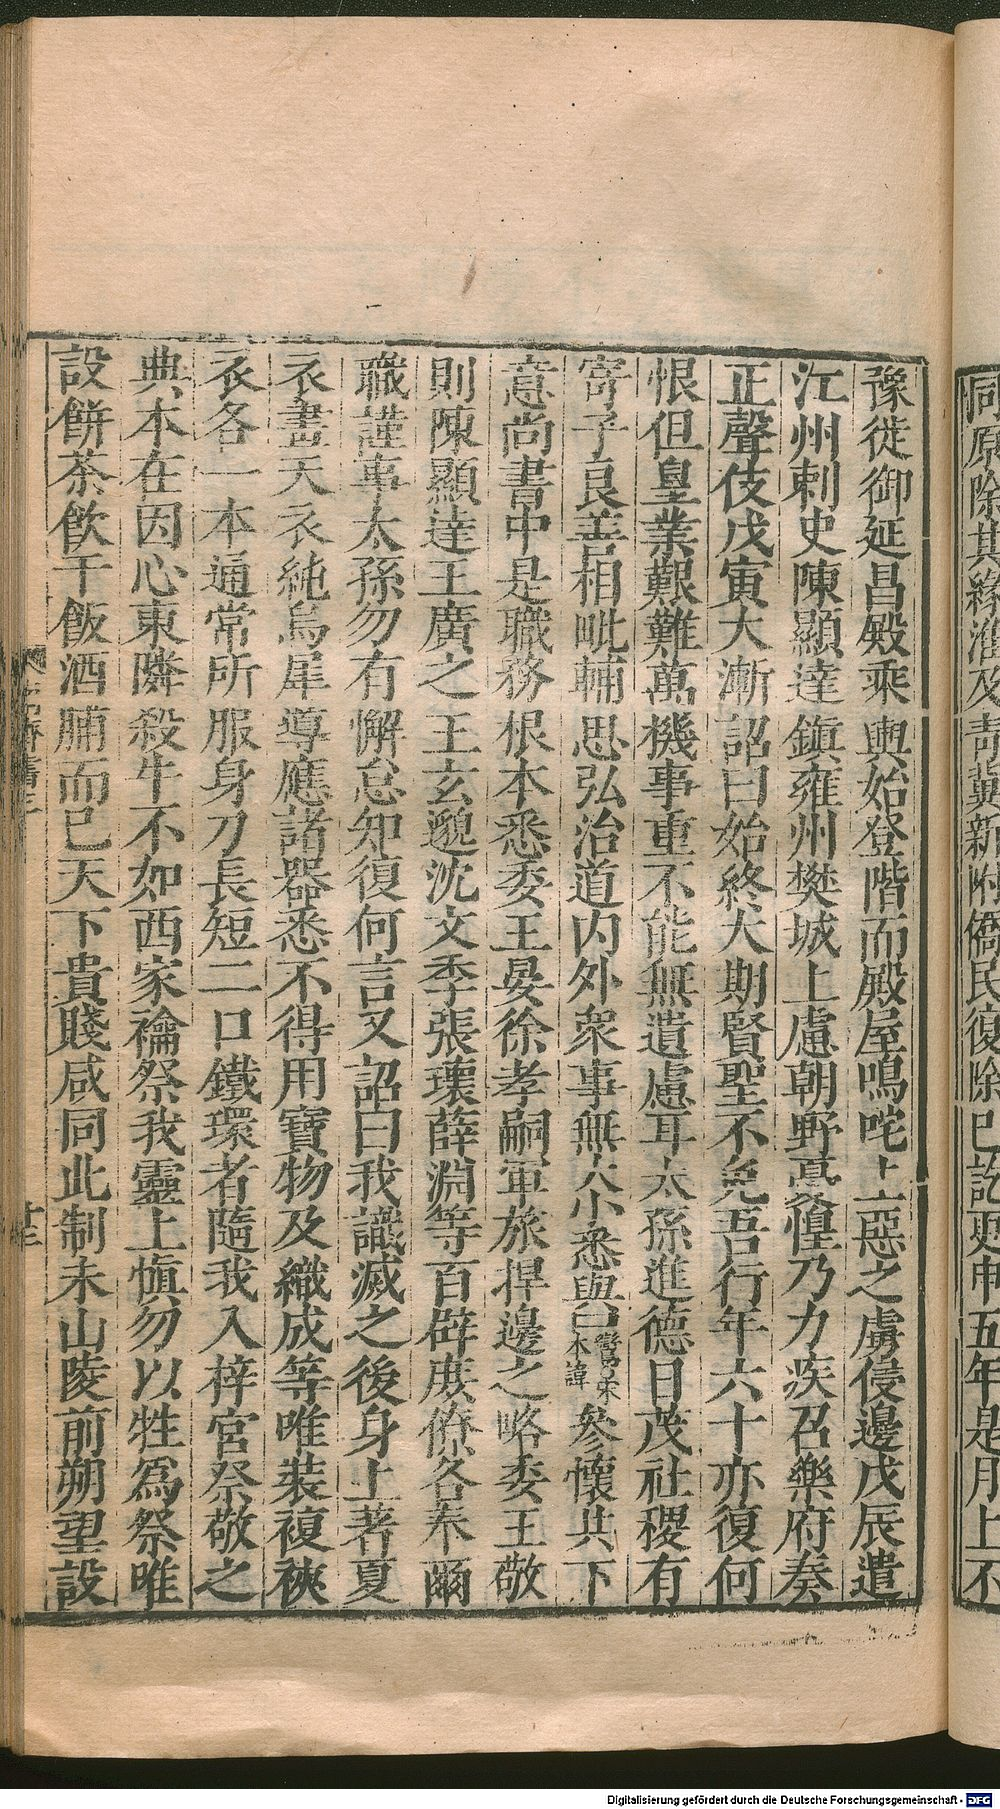 同原除其緣淮及青冀新附僑民復除已訖更申五年是月上不
豫徙御延昌殿乘輿始登階而殿屋鳴咤上惡之虜侵邊戊辰遣
江州刺史陳顯達鎮雍州樊城上慮朝野憂惶乃力疾召樂府奏
正聲伎戊寅大漸詔曰始終大期賢聖不免吾行年六十亦復何
恨但皇業艱難萬機事重不能無遺慮耳太孫進德日茂社稷有
寄子良善相毗輔思弘治道内外衆事無大小悉與鸞易宋本諱參懷共下
意尚書中是職務根本悉委王晏徐孝嗣軍旅捍邊之略委王敬
則陳顯達王廣之王玄邈沈文季張瓌薛淵等百辟庶僚各奉爾
職謹事太孫勿有懈怠知復何言又詔曰我識滅之後身上著夏
衣畫天衣純烏犀導應諸器悉不得用寶物及織成等唯裝複裌
衣各一本通常所服身刀長短二口鐵環者隨我入梓宮祭敬之
典本在因心東隣殺牛不如西家禴祭我靈上愼勿以牲爲祭唯
設餅茶飲干飯酒脯而已天下貴賤咸同此制未山陵前朔望設
廿三
Digitalisierung gefördert durch die Deutsche Forschungsgemeinschaft - DFG